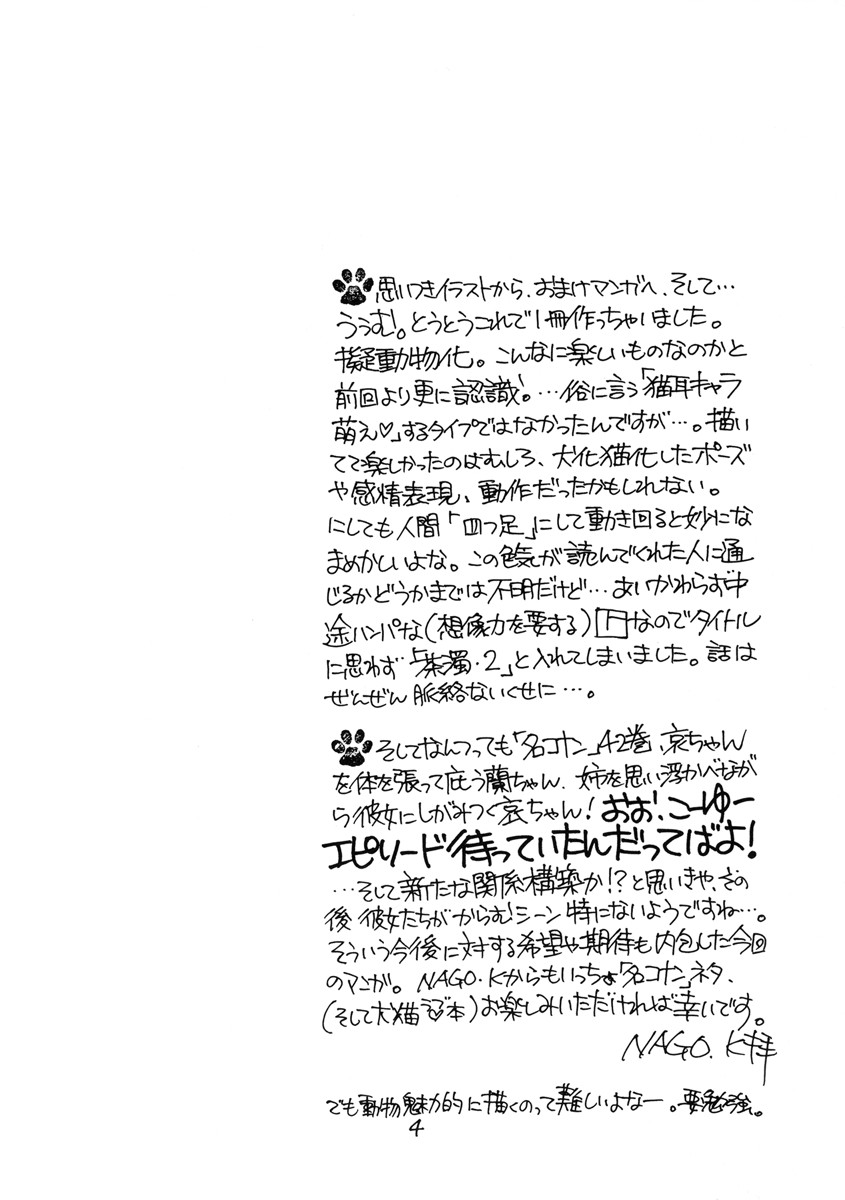 思いつきイラストから、おまけマンガへ、そして…
ううむ!。とうとうこれで1冊作っちゃいました。
擬動物化。こんなに楽しいものなのかと
前回より更に認識!。…俗に言う「猫耳キャラ
萌え♡」するタイプではなかったんですが…。描い
てて楽しかったのはむしろ、犬化猫化したポーズ
や感情表現、動作だったかもしれない。
にしても人間「四つ足」にして動き回ると妙にな
まめかしいよな。この色気が読んでくれた人に通
じるかどうかまでは不明だけど…あいかわらず中
途ハンパな(想像力を要する)Hなのでタイトル
に思わず「茶濁・2」と入れてしまいました。話は
ぜんぜん脈絡ないくせに…。
そしてなんつっても「名コナン」42巻、哀ちゃん
を体を張って庇う蘭ちゃん、姉を思い浮かべなが
ら彼女にしがみつく哀ちゃん!おお!、こーゆー
エピソード待っていたんだってばよ!
…そして新たな関係構築か!?と思いきや、その
後彼女たちがからむシーン特にないようですね…。
そういう今後に対する希望や期待も内包した今回
のマンガ。NAGO.Kからもいっちょ「名コナン」ネタ、
(そして犬猫ラブ♡本)お楽しみいただければ幸いです。
NAGO.K拝
でも動物魅力的に描くのって難しいよなー。要勉強。
4